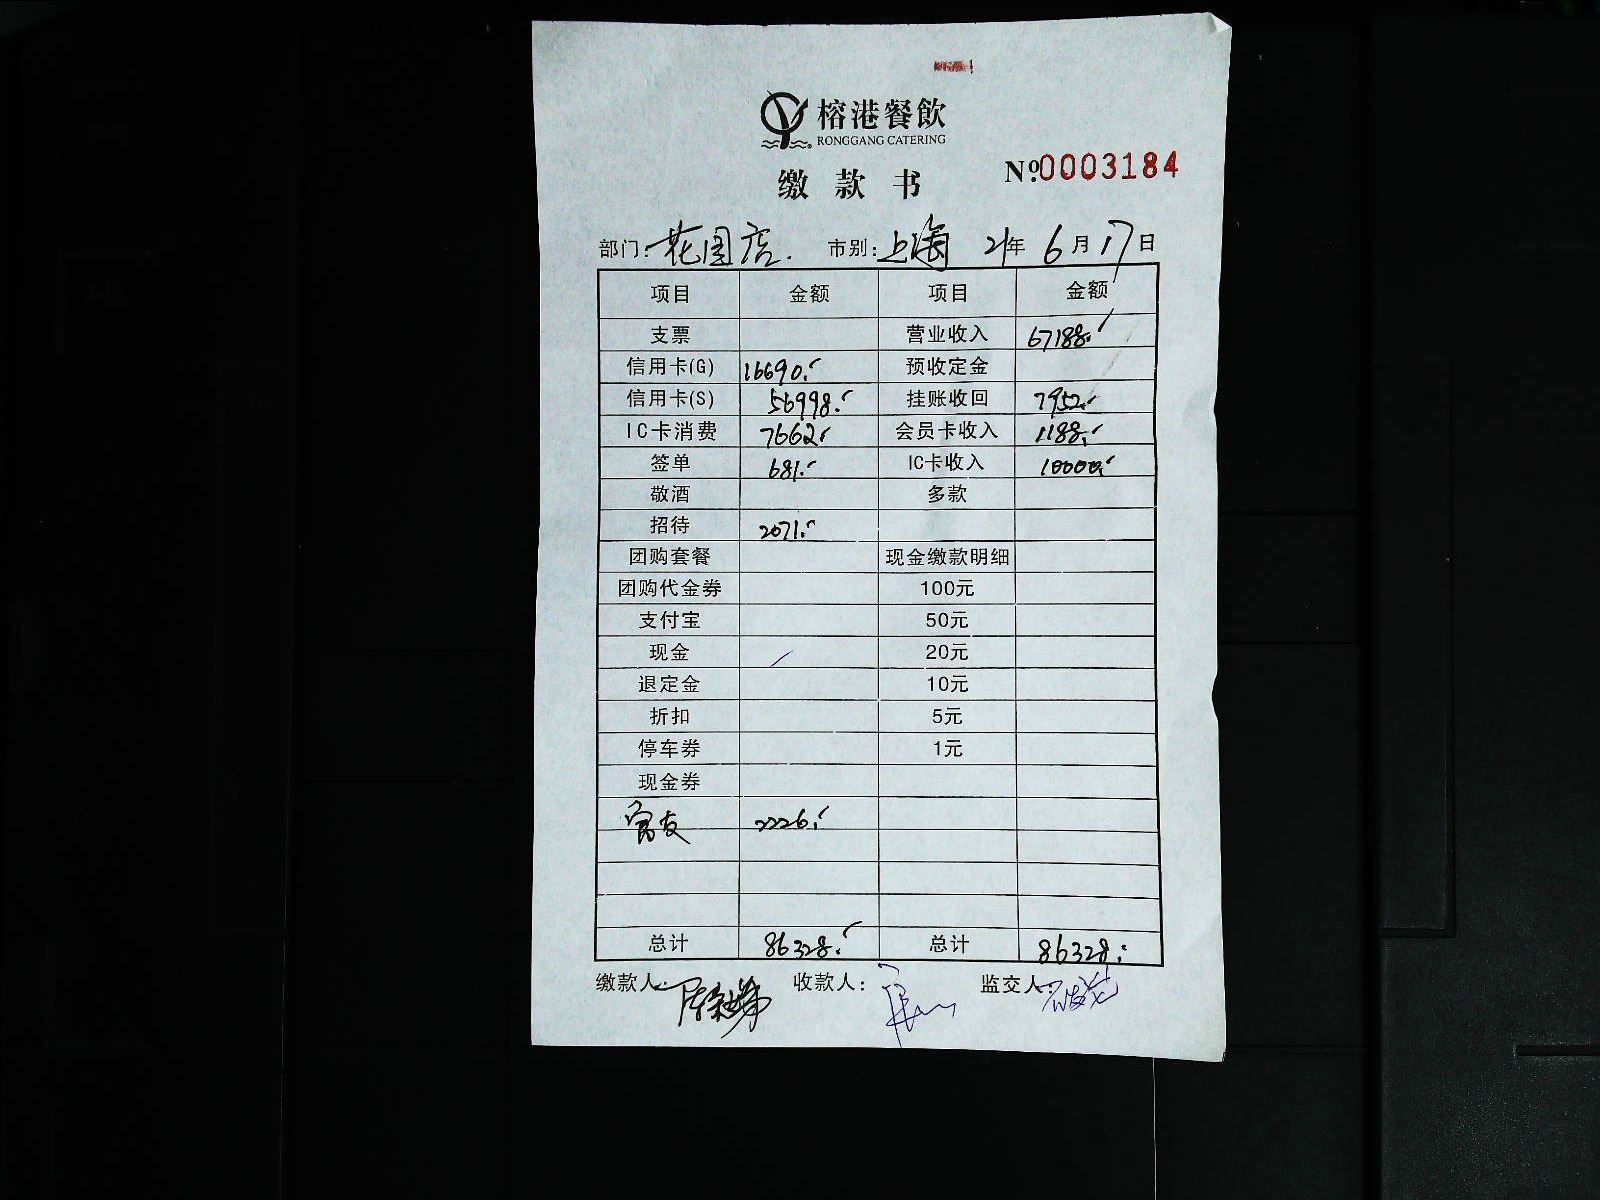 榕港餐飲
RONGGANG CATERING
缴款书 Nº:0003184
部门:花园店. 市别:上海 21年6月17日
项目 金额 项目 金额
支票 营业收入 67188.
信用卡(G) 16690. 预收定金
信用卡(S) 56998. 挂账收回 7952.
IC卡消费 7662 会员卡收入 1188.
签单 681. IC卡收入 10000.
敬酒 多款
招待 2071.
团购套餐 现金缴款明细
团购代金券 100元
支付宝 50元
现金 20元
退定金 10元
折扣 5元
停车券 1元
现金券
2226.
总计 86328. 总计 86328.
缴款人: 收款人: 监交人: